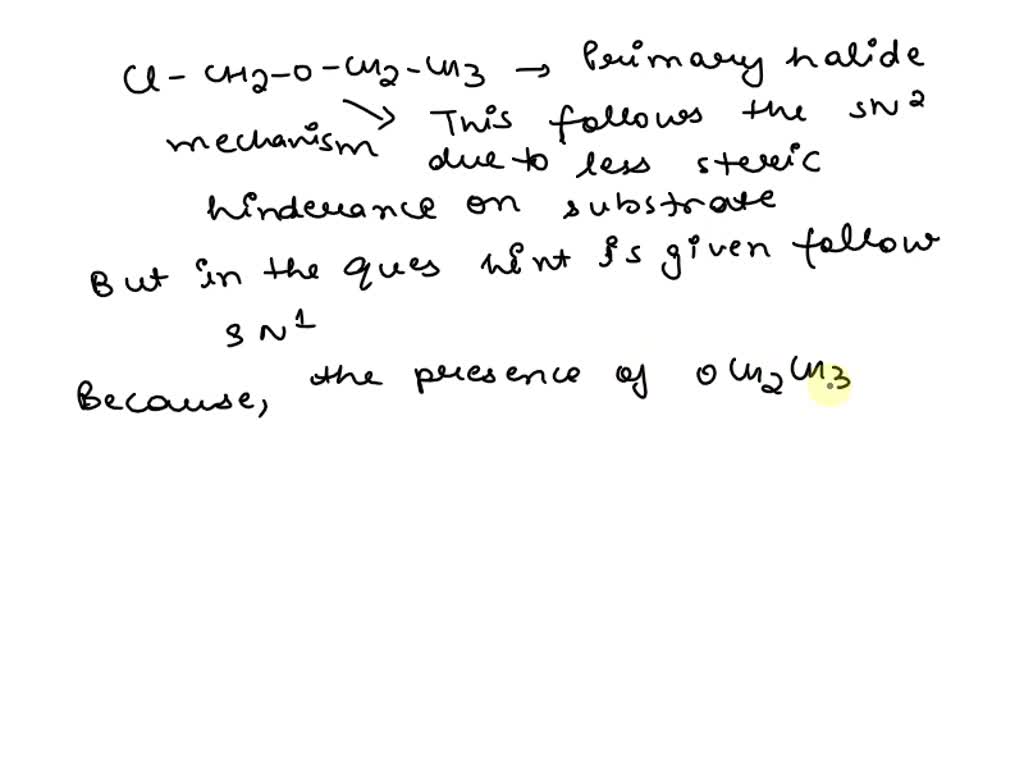 Cl - CH2 - O - CH2 - CH3 → Primary halide
mechanism → This follows the SN2
due to less steric
hinderance on substrate
But in the ques hint is given follow
SN1
Because, the presence of OCH2CH3